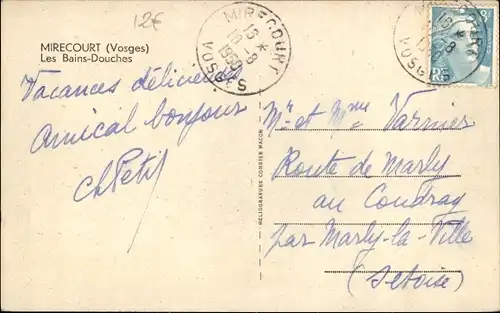 12€
MIRECOURT (Vosges)
Les Bains-Douches
MIRECOURT
VOSGES
Vacances délicieuses
Amical bonjour
Ch Petit
HELIOGRAVURE COMBIER MACON
Mr et Mme Varnier
Route de Marly
au Coudray
par Marly-la-Ville
(Set Oise)